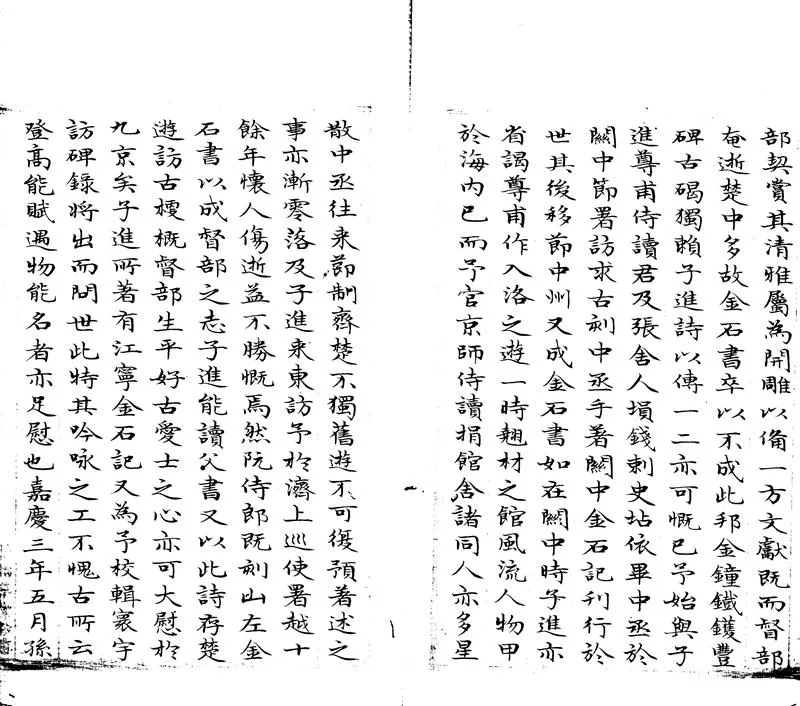 部契賞其清雅屬為開雕以備一方文獻既而督部
奄逝楚中多故金石書卒以不成此邦金鐘鐵鑊豐
碑古碣獨賴子進詩以傳一二亦可慨已予始與子
進尊甫侍讀君及張舍人塤錢刺史坫依畢中丞於
關中節署訪求古刻中丞手著關中金石記刊行於
世其後移節中州又成金石書如在關中時子進亦
省謁尊甫作入洛之遊一時翹材之館風流人物甲
於海内已而予官京師侍讀捐館舍諸同人亦多星
散中丞往来節制齊楚不獨舊遊不可復預著述之
事亦漸零落及子進来東訪予於濟上巡使署越十
餘年懷人傷逝益不勝慨焉然阮侍郎既刻山左金
石書以成督部之志子進能讀父書又以此詩存楚
遊訪古梗概督部生平好古愛士之心亦可大慰於
九京矣子進所著有江寧金石記又為予校輯寰宇
訪碑錄將出而問世此特其吟咏之工不愧古所云
登高能賦遇物能名者亦足慰也嘉慶三年五月孫